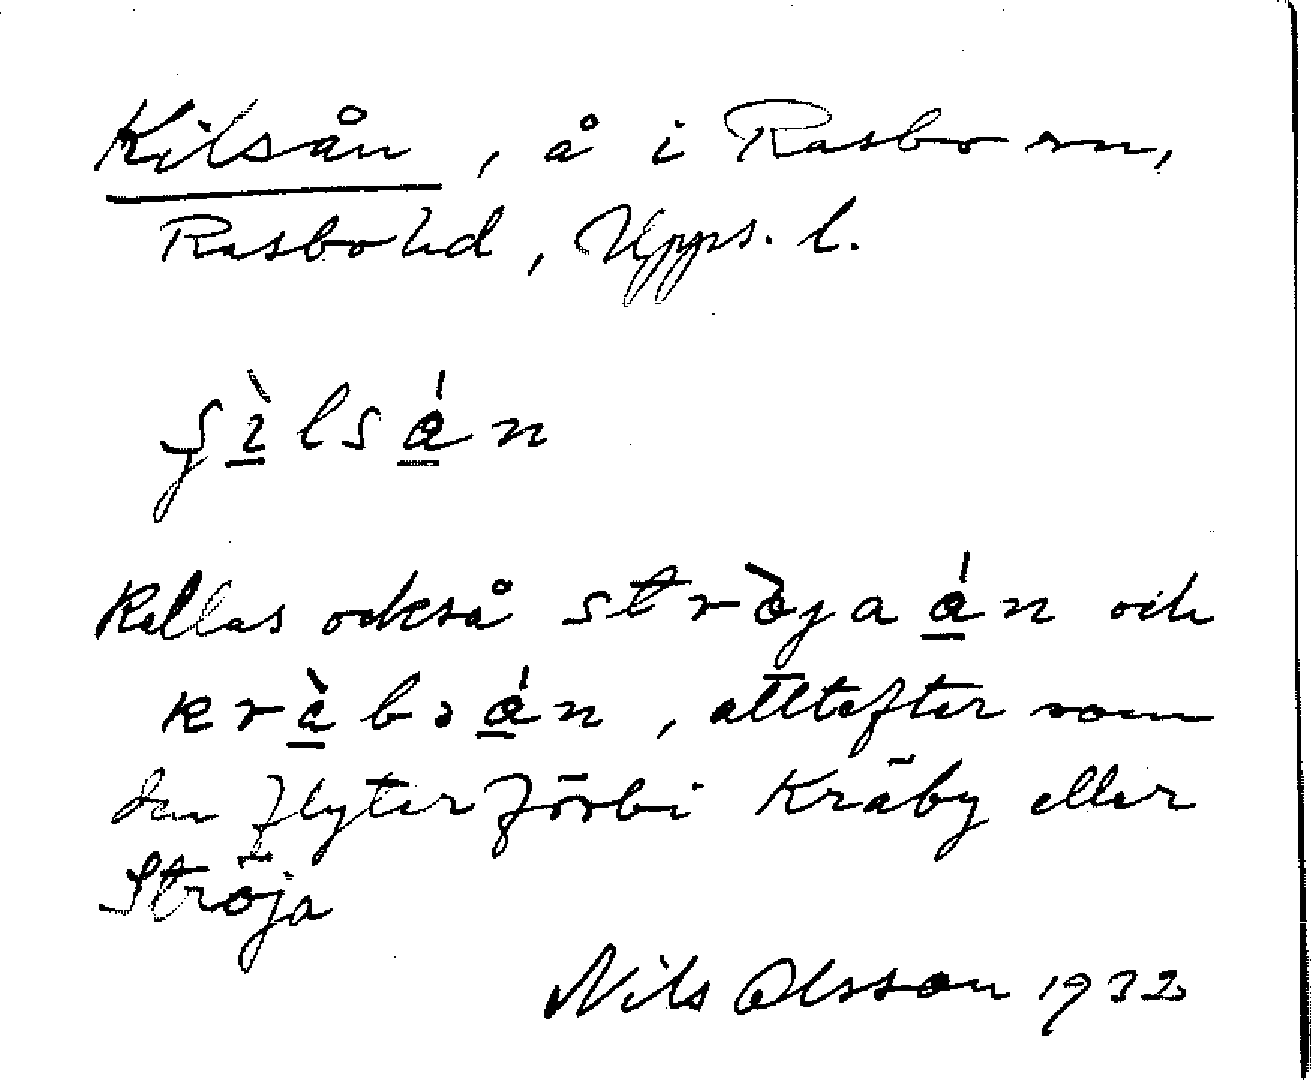 Kilsån, å i Rasbo sn,
Rasbo hd, Upps. l.
ʃìlsån
Kallas också stròjaån och
kràbsån, alltefter som
den flyter förbi Kräby eller
Ströja
Nils Olsson 1932